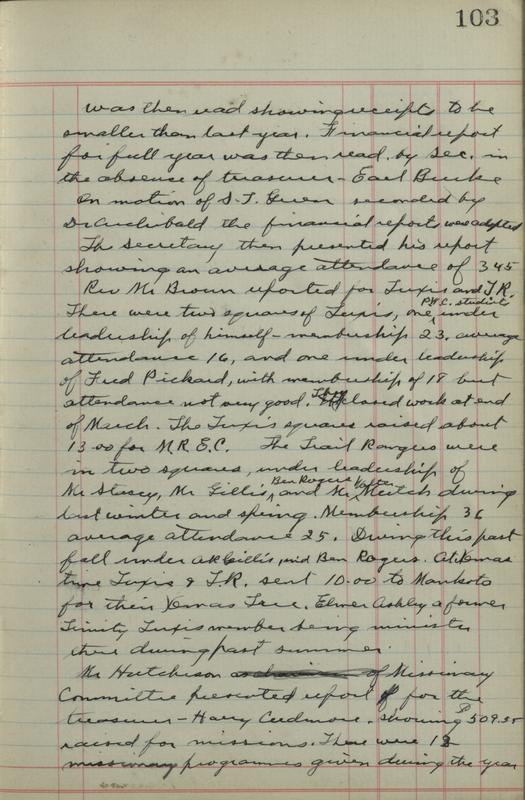 103
was then read showing receipts to be
smaller than last year. Financial report
for full year was then read, by Sec. in
the absence of treasurer - Earl Burke
On motion of S. T. Green seconded by
Dr Archibald the financial reports were adopted
The Secretary then presented his report
showing an average attendance of 345
Rev Mr Brown reported for Tuxis and T.R.
P.W.C. students
There were two squares of Tuxis, one, under
leadership of himself - membership 23, average
attendance 16, and one under leadership
of Fred Pickard, with membership of 18 but
attendance not very good. closed work at end
of March. The Tuxis squares raised about
13.00 for M.R.E.C. The Trail Rangers were
in two squares, under leadership of
Ben Rogers
Mr Stacey, Mr Gillis, and Mr Veitch during
last winter and spring. Membership 36
average attendance 25. During this past
fall under Gillis, and Ben Rogers. At Xmas
time Tuxis & T.R. sent 10.00 to Mankota
for their Xmas Tree. Elmer Ashley a former
Trinity Tuxis member being minister
there during past summer.
Mr Hutchison of Missionary
Committee presented report for the
treasurer - Harry Cudmore. showing $509.35
raised for missions. There were 12
missionary programmes given during the year